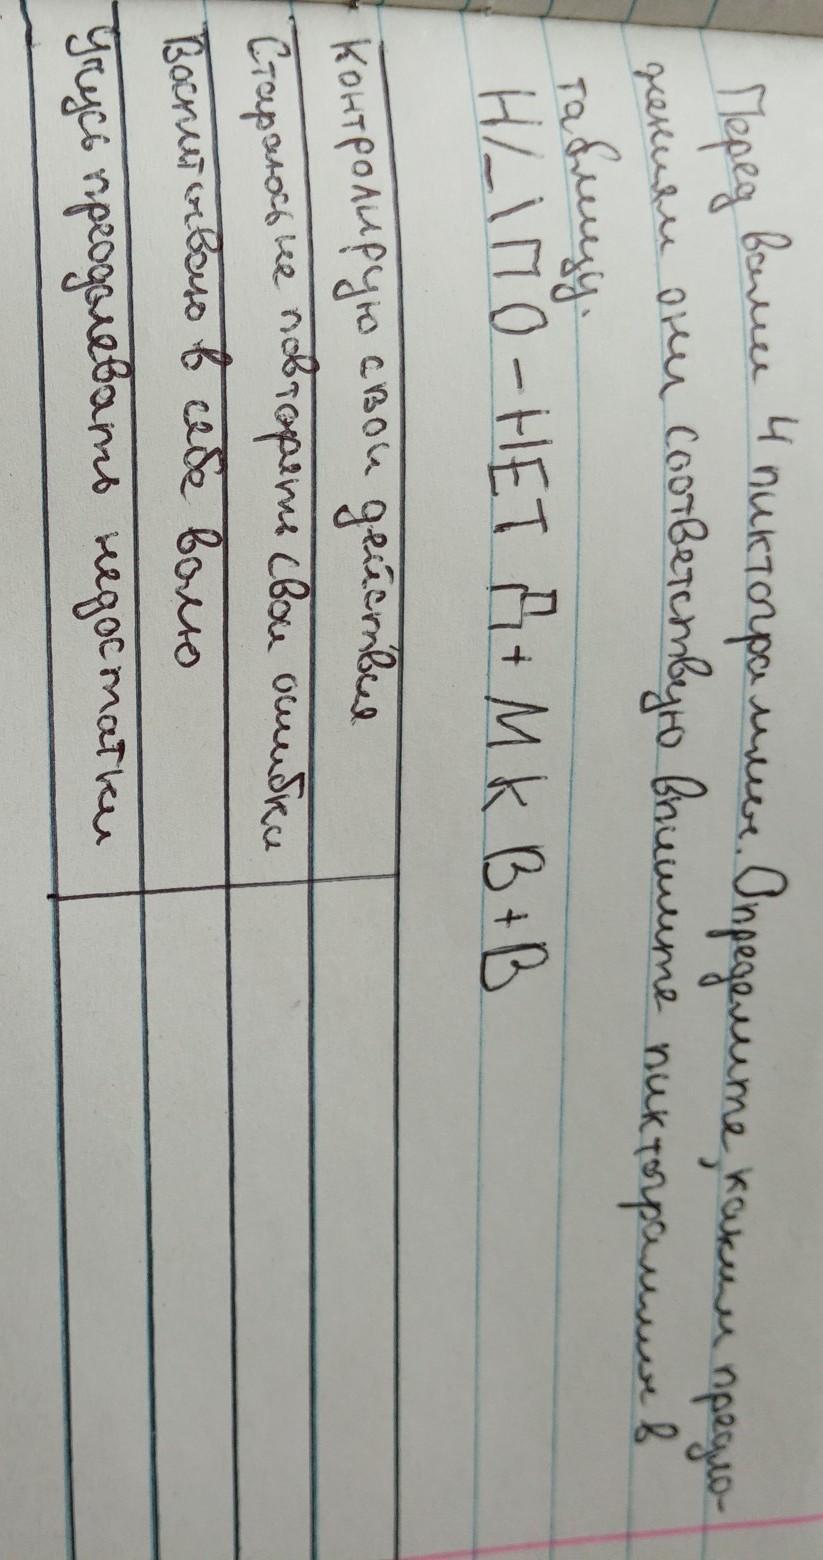 Перед вами 4 пиктограммы. Определите, каким предло-
жениям они соответствую впишите пиктограммы в
таблицу.
Н/_\ПО-НЕТ Д+МКВ+В
Контролирую свои действия
Стараюсь не повторять свои ошибки
Воспитываю в себе волю
Учусь преодолевать недостатки